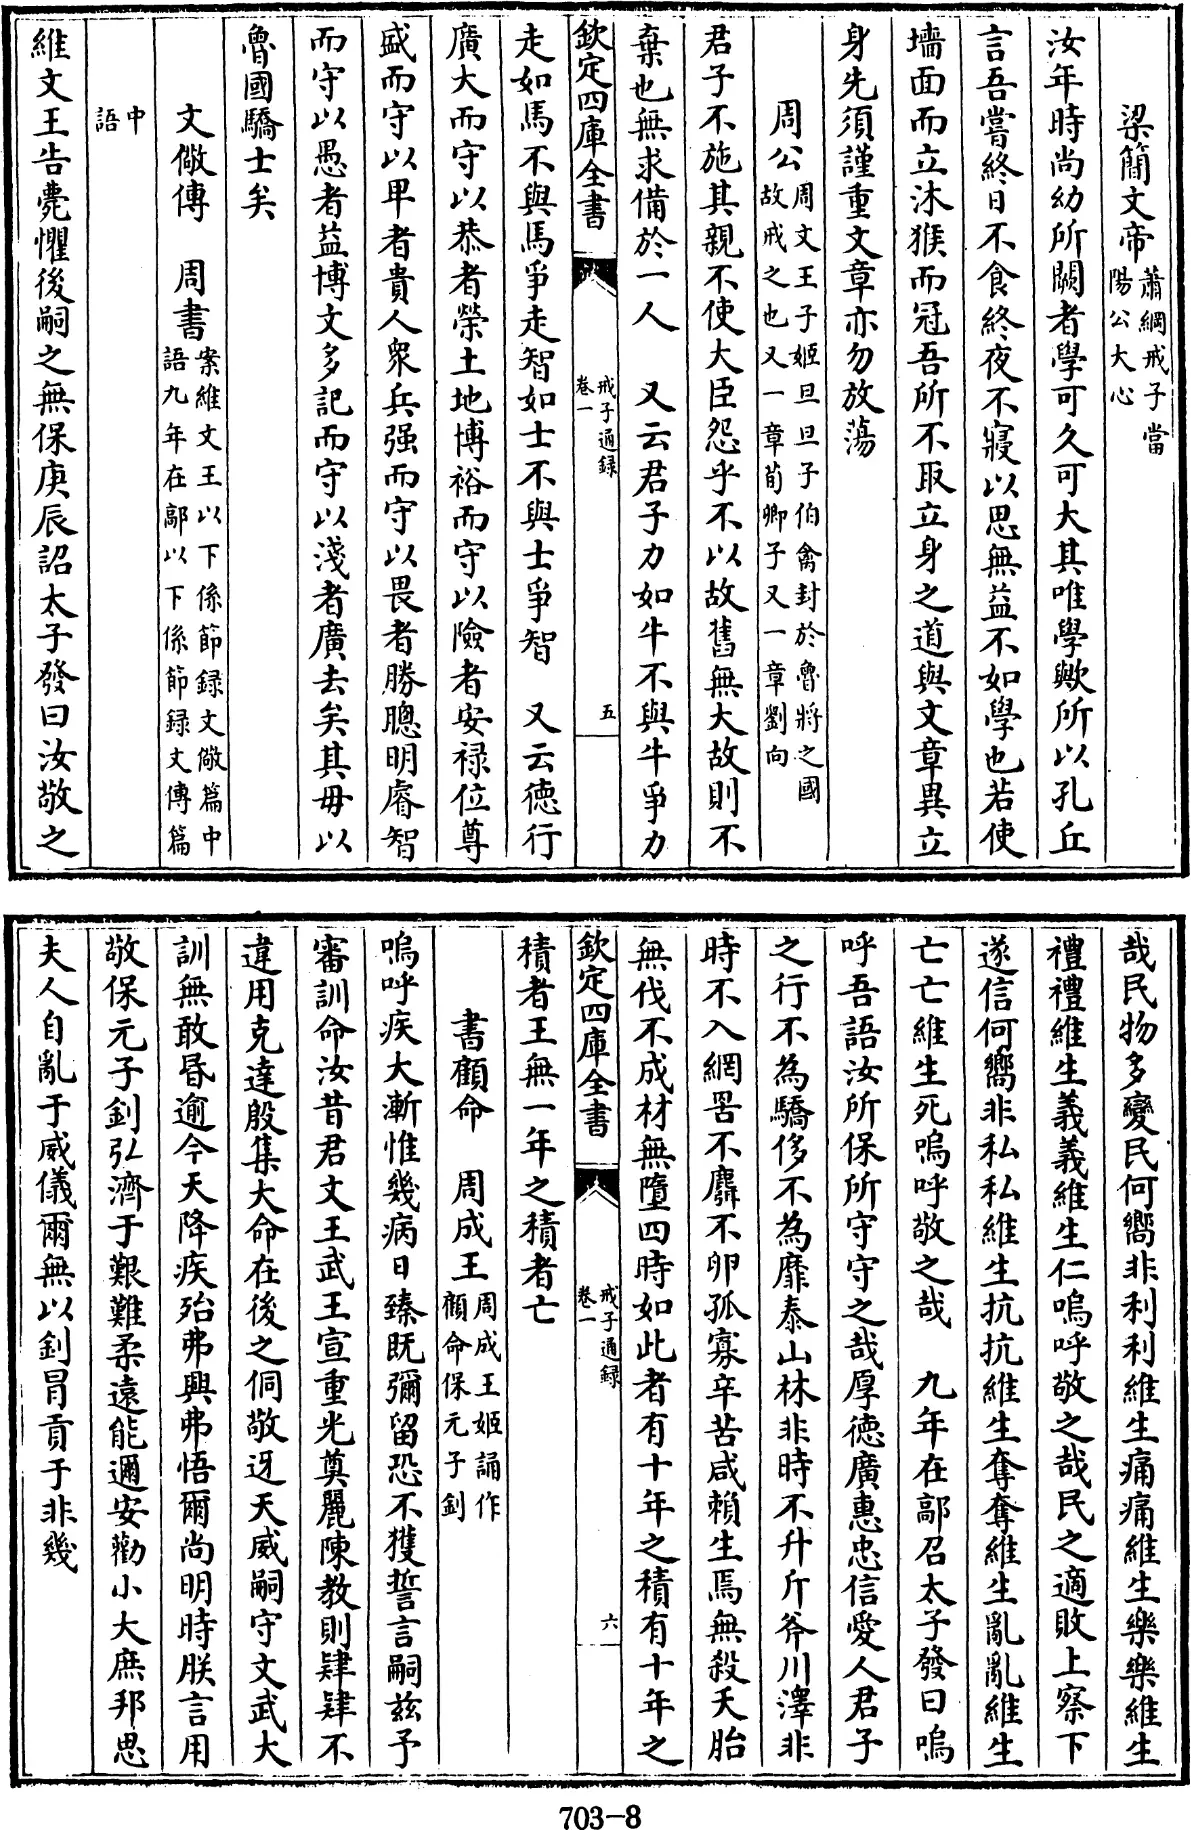 梁簡文帝
蕭綱戒子當
陽公大心
汝年時尚幼所闕者學可久可大其唯學歟所以孔丘
言吾嘗終日不食終夜不寢以思無益不如學也若使
墻面而立沐猴而冠吾所不取立身之道與文章異立
身先須謹重文章亦勿放蕩
周公
周文王子姬旦旦子伯禽封於魯將之國
故戒之也又一章荀卿子又一章劉向
君子不施其親不使大臣怨乎不以故舊無大故則不
棄也無求備於一人 又云君子力如牛不與牛爭力
欽定四庫全書
戒子通録
卷一
五
走如馬不與馬爭走智如士不與士爭智 又云德行
廣大而守以恭者榮土地博裕而守以險者安禄位尊
盛而守以卑者貴人衆兵强而守以畏者勝聰明睿智
而守以愚者益博文多記而守以淺者廣去矣其毋以
魯國驕士矣
文儆傳 周書
案維文王以下係節録文儆篇中
語九年在鄗以下係節録文傳篇
中
語
維文王告薨懼後嗣之無保庚辰詔太子發曰汝敬之
哉民物多變民何嚮非利利維生痛痛維生樂樂維生
禮禮維生義義維生仁嗚呼敬之哉民之適敗上察下
遂信何嚮非私私維生抗抗維生奪奪維生亂亂維生
亡亡維生死嗚呼敬之哉 九年在鄗召太子發曰嗚
呼吾語汝所保所守守之哉厚德廣惠忠信愛人君子
之行不為驕侈不為靡泰山林非時不升斤斧川澤非
時不入網罟不麛不卵孤寡辛苦咸賴生焉無殺夭胎
無伐不成材無墮四時如此者有十年之積有十年之
欽定四庫全書
戒子通録
卷一
六
積者王無一年之積者亡
書顧命 周成王
周成王姬誦作
顧命保元子釗
嗚呼疾大漸惟幾病日臻既彌留恐不獲誓言嗣兹予
審訓命汝昔君文王武王宣重光奠麗陳教則肄肄不
違用克達殷集大命在後之侗敬迓天威嗣守文武大
訓無敢昬逾今天降疾殆弗興弗悟爾尚明時朕言用
敬保元子釗弘濟于艱難柔遠能邇安勸小大庶邦思
夫人自亂于威儀爾無以釗冒貢于非幾
703-8